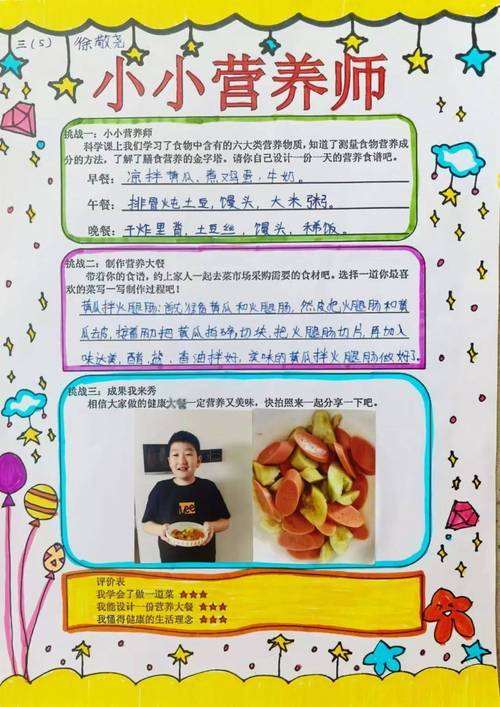 三（5） 徐敬尧
小小营养师
挑战一：小小营养师
科学课上我们学习了食物中含有的六大类营养物质，知道了测量食物营养成
分的方法，了解了膳食营养的金字塔。请你自己设计一份一天的营养食谱吧。
早餐：凉拌黄瓜、煮鸡蛋、牛奶。
午餐：排骨炖土豆，馒头，大米粥。
晚餐：干炸里脊，土豆丝，馒头、稀饭。
挑战二：制作营养大餐
带着你的食谱，约上家人一起去菜市场采购需要的食材吧。选择一道你最喜
欢的菜写一写制作过程吧！
黄瓜拌火腿肠：首先准备黄瓜和火腿肠，然后把火腿肠和黄
瓜去皮，接着把黄瓜拍碎切块，把火腿肠切片，再加入
味达美，醋，盐，香油拌好，美味的黄瓜拌火腿肠做好了。
挑战三：成果我来秀
相信大家做的健康大餐一定营养又美味，快拍照来一起分享一下吧。
Lee
评价表
我学会了做一道菜 ★★★
我能设计一份营养大餐 ★★★
我懂得健康的生活理念 ★★★